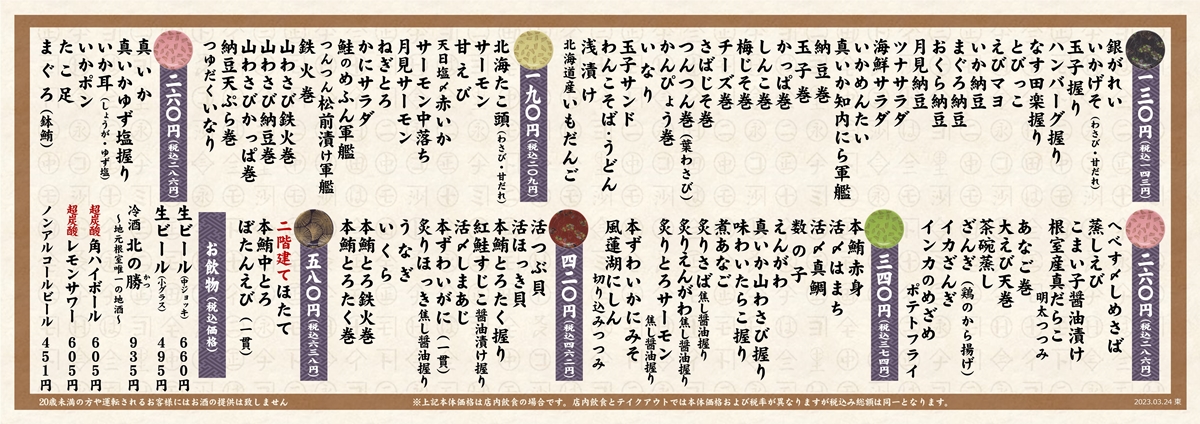 一三〇円(税込一四三円)
銀がれい
いかげそ(わさび・甘だれ)
玉子握り
ハンバーグ握り
なす田楽握り
とびっこ
えびマヨ
いか納豆
まぐろ納豆
おくら納豆
月見納豆
ツナサラダ
海鮮サラダ
いかめんたい
真いか知内にら軍艦
納豆巻
玉子巻
かっぱ巻
しんこ巻
梅じそ巻
チーズ巻
さばじそ巻
つんつん巻(葉わさび)
かんぴょう巻
いなり
玉子サンド
わんこそば・うどん
浅漬け
北海道産いもだんご
一九〇円(税込二〇九円)
北海たこ頭(わさび・甘だれ)
サーモン
甘えび
天日塩〆赤いか
サーモン中落ち
月見サーモン
ねぎとろ
かにサラダ
鮭のめふん軍艦
つんつん松前漬け軍艦
鉄火巻
山わさび鉄火巻
山わさび納豆巻
山わさびかっぱ巻
納豆天ぷら巻
つゆだくいなり
二六〇円(税込二八六円)
真いか
真いかゆず塩握り
いか耳(しょうが・ゆず塩)
いかポン
たこ足
まぐろ(鉢鮪)
二六〇円(税込二八六円)
へべす〆しめさば
蒸しえび
こまい子醤油漬け
根室産真だらこ
明太つつみ
あなご巻
大えび天巻
茶碗蒸し
ざんぎ(鶏のから揚げ)
イカざんぎ
インカのめざめ
ポテトフライ
三四〇円(税込三七四円)
本鮪赤身
活〆はまち
活〆真鯛
数の子
えんがわ
味わいたらこ握り
真いか山わさび握り
煮あなご
炙りさば焦し醤油握り
炙りえんがわ焦し醤油握り
炙りとろサーモン
焦し醤油握り
本ずわいかにみそ
風蓮湖にしん
切り込みつつみ
四二〇円(税込四六二円)
活つぶ貝
活ほっき貝
本鮪とろたく握り
紅鮭すじこ醤油漬け握り
活〆しまあじ
本ずわいがに(一貫)
炙りほっき焦し醤油握り
うなぎ
いくら
本鮪とろ鉄火巻
本鮪とろたく巻
五八〇円(税込六三八円)
二階建てほたて
本鮪中とろ
ぼたんえび(一貫)
お飲物(税込価格)
生ビール(中ジョッキ) 660円
生ビール(小グラス) 495円
冷酒 北の勝 935円
かつ
〜地元根室唯一の地酒〜
超炭酸 角ハイボール 605円
超炭酸 レモンサワー 605円
ノンアルコールビール 451円
20歳未満の方や運転されるお客様にはお酒の提供は致しません
※上記本体価格は店内飲食の場合です。店内飲食とテイクアウトでは本体価格および税率が異なりますが税込み総額は同一となります。
2023.03.24 東